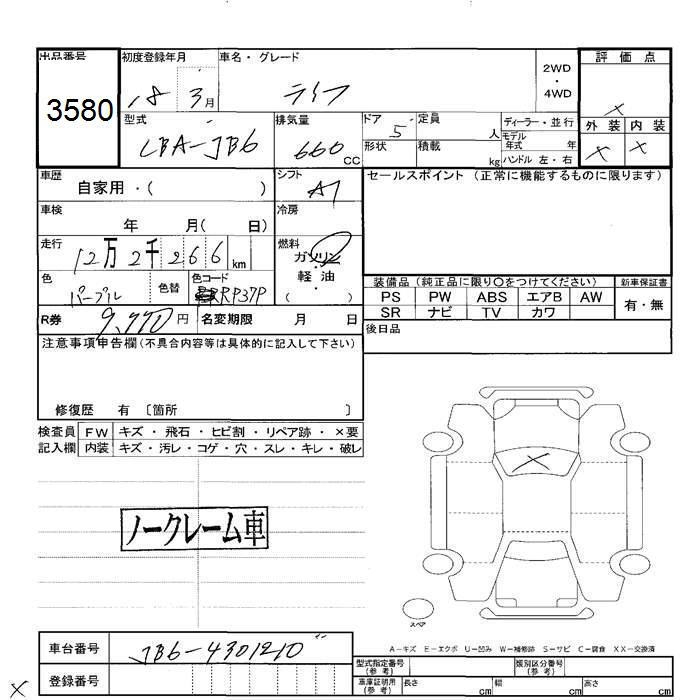 出品番号 初度登録年月 車名・グレード 2WD 評価点
3580 18 3月 ライフ ・ 4WD ×
型式 排気量 ドア 定員 ディーラー・並行 外装 内装
LBA-JB6 660 CC 5 人 モデル年式 年 × ×
形状 積載 kg ハンドル 左・右
車歴 自家用・( ) シフト AT セールスポイント(正常に機能するものに限ります)
車検 年 月( 日) 冷房
走行 12万2千266km 燃料 ガソリン
軽・油
( )
色 パープル 色替 色コード RP37P
装備品(純正品に限り○をつけてください) 新車保証書
PS PW ABS エアB AW 有・無
SR ナビ TV カワ
R券 9,770円 名変期限 月 日 後日品
注意事項申告欄(不具合内容等は具体的に記入して下さい)
修復歴 有 〔箇所 〕
検査員 FW キズ・飛石・ヒビ割・リペア跡・×要
記入欄 内装 キズ・汚レ・コゲ・穴・スレ・キレ・破レ
×
ノークレーム車
スペア
A−キズ E−エクボ U−凹み W−補修跡 S−サビ C−腐食 XX−交換済
車台番号 JB6-4301210
登録番号
型式指定番号(参考) 類別区分番号(参考)
車庫証明用(参考) 長さ cm 幅 cm 高さ cm
×